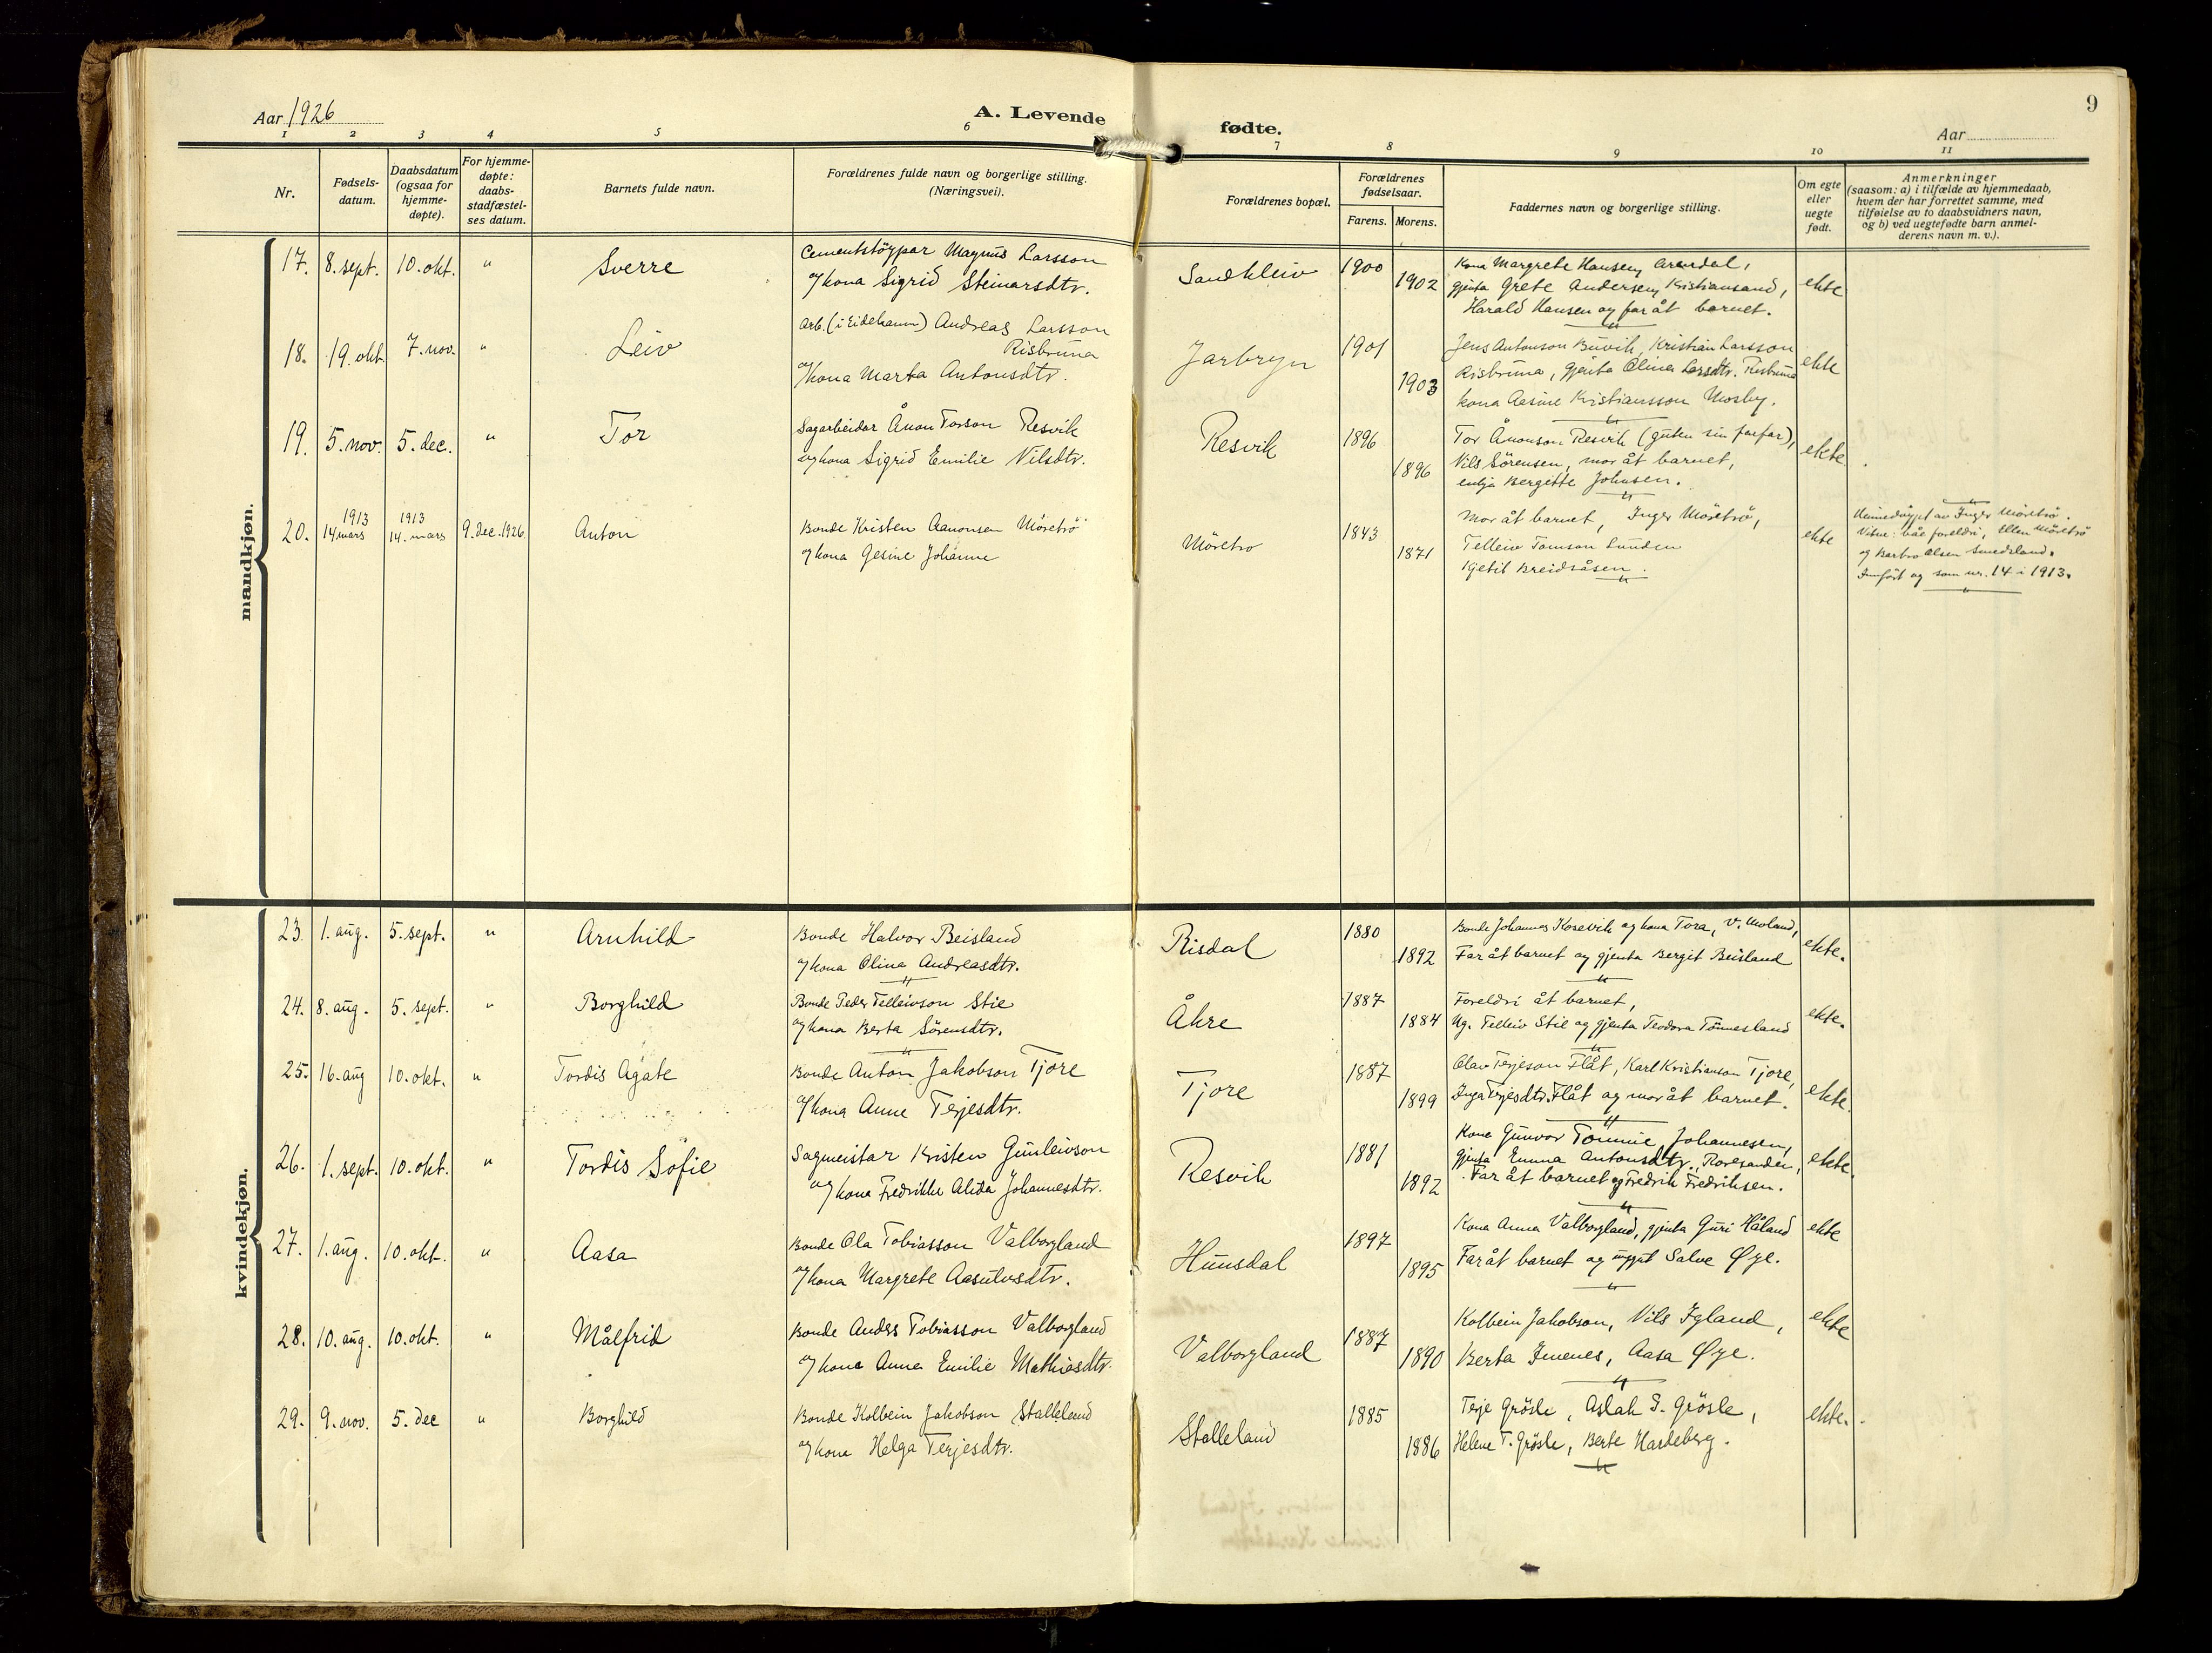 9
Aar 1926
A. Levende fødte.
Aar
1 2 3 4 5 6 7 8 9 10 11
Nr.
Fødsels-
datum.
Daabsdatum
(ogsaa for
hjemme-
døpte).
For hjemme-
døpte:
daabs-
stadfæstel-
ses datum.
Barnets fulde navn.
Forældrenes fulde navn og borgerlige stilling.
(Næringsvei).
Forældrenes bopæl.
Forældrenes
fødselsaar.
Farens. Morens.
Faddernes navn og borgerlige stilling.
Om egte
eller
uegte
født.
Anmerkninger
(saasom: a) i tilfælde av hjemmedaab,
hvem der har forrettet samme, med
tilføielse av to daabsvidners navn,
og b) ved uegtefødte barn anmel-
derens navn m. v.).
mandkjøn.
17. 8. sept. 10. okt. " Sverre
Cementstöypar Magnus Larsson
og kona Sigrid Steinarsdtr.
Sandkleiv 1900 1902
Kona Margrete Hansen, Arendal,
gjenta Grete Andersen, Kristiansand,
Harald Hansen og far åt barnet.
ekte
18. 19. okt. 7. nov. " Leiv
Arb. (i Eidehamn) Andreas Larsson
Risbruna
og kona Marta Antonsdtr.
Jarbryn 1901 1903
Jens Antonson Buvik, Kristian Larsson
Risbruna, gjenta Olina Larsdtr. Risbruna
kona Aesine Kristiansson Mosby.
ekte
19. 5. nov. 5. dec. " Tor
Sagarbeidar Ånon Torson Resvik
og kona Sigrid Emilie Nilsdtr.
Resvik 1896 1896
Tor Ånonson Resvik (guten sin farfar),
Nils Sörensen, mor åt barnet,
enkja Bergitte Johnsen.
ekte
20. 1913 14 mars 1913 14. mars 9. dec. 1926 Anton
Bonde Kristen Aanonsen Möretrö
og kona Gesine Johanne
Möretro 1843 1871
Mor åt barnet, Inger Möretrö,
Telleiv Tomson Lunden
Kjetil Breidsåsen.
ekte
Heimedöypt av Inger Möretrö.
Vitne: båe foreldri, Ellen Möretrö
og Barbro Olsen Smedsland.
Innfört og som nr. 14 i 1913.
kvindekjøn.
23. 1. aug. 5. sept. " Arnhild
Bonde Halvor Beisland
og kona Olina Andreasdtr.
Risdal 1880 1892
Bonde Johannes Korevik og kona Tora, V. Moland,
Far åt barnet og gjenta Bergit Beisland
ekte.
24. 8. aug. 5. sept. " Borghild
Bonde Peder Telleivson Stie
og kona Berta Sörensdtr.
Åkre 1887 1884
Foreldri åt barnet,
Ug. Telleiv Stie og gjenta Teodora Tönnesland
ekte.
25. 16. aug 10. okt. " Tordis Agate
Bonde Anton Jakobson Tjore
og kona Anne Terjesdtr.
Tjore 1887 1899
Olav Terjeson Flåt, Karl Kristianson Tjore,
Inga Terjesdtr. Flåt og mor åt barnet.
ekte.
26. 1. sept. 10. okt. " Tordis Sofie
Sagmeistar Kristen Gunleivson
og kona Fredrikke Alida Johannesdtr.
Resvik 1881 1892
Kona Gunvor Tomine Johannesen,
gjenta Emma Antonsdtr., Roresanden,
Far åt barnet og Fredrik Fredriksen.
ekte.
27. 1. aug. 10. okt. " Aasa
Bonde Ola Tobiasson Valborgland
og kona Margrete Aasulvsdtr.
Hunsdal 1897 1895
Kona Anna Valborgland, gjenta Guri Håland
Far åt barnet og ungut Salve Øye.
ekte
28. 10. aug. 10. okt. " Målfrid
Bonde Anders Tobiasson Valborgland
og kona Anna Emilie Mathiasdtr.
Valborgland 1887 1890
Kolbein Jakobson, Nils Igland,
Berta Imenes, Aasa Øye.
ekte
29. 9. nov. 5. dec " Borghild
Bonde Kolbein Jakobson Stalleland
og kona Helga Terjesdtr.
Stalleland 1885 1886
Terje Grösle, Aslak S. Grösle,
Helene T. Grösle, Berte Hardeberg.
ekte.